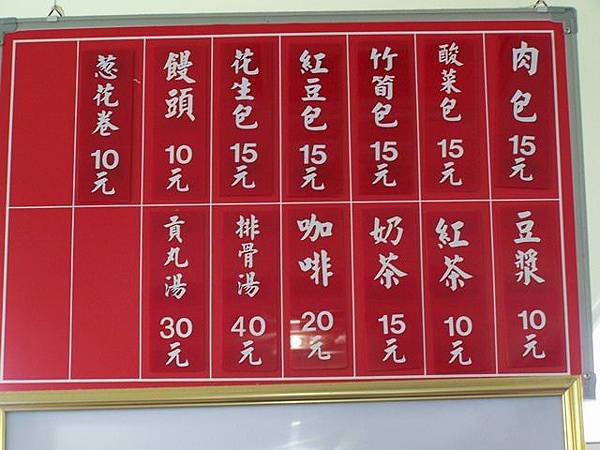 肉包 15元
酸菜包 15元
竹筍包 15元
紅豆包 15元
花生包 15元
饅頭 10元
葱花卷 10元
豆漿 10元
紅茶 10元
奶茶 15元
咖啡 20元
排骨湯 40元
貢丸湯 30元